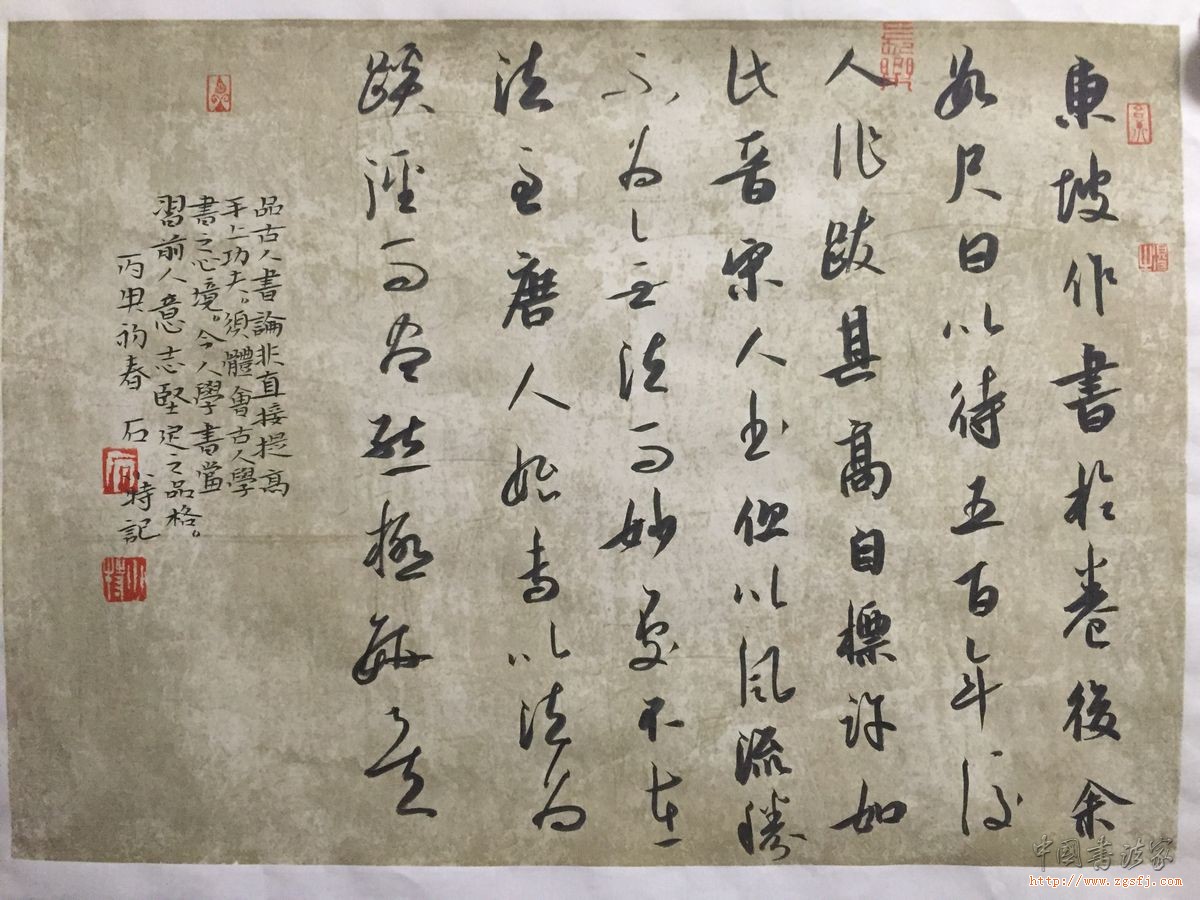 東坡作書於卷後余
數尺曰以待五百年後
人作跋其高自標許如
此晉宋人書但以風流勝
不為無法而妙處不在
法至唐人始專以法為
蹊徑而盡態極妍矣
品古人書論非直接提高
手上功夫。須體會古人學
書之心境。今人學書當
習前人意志堅定之品格。
丙申初春 石 特記
中国书法家
http://www.zgsfj.com